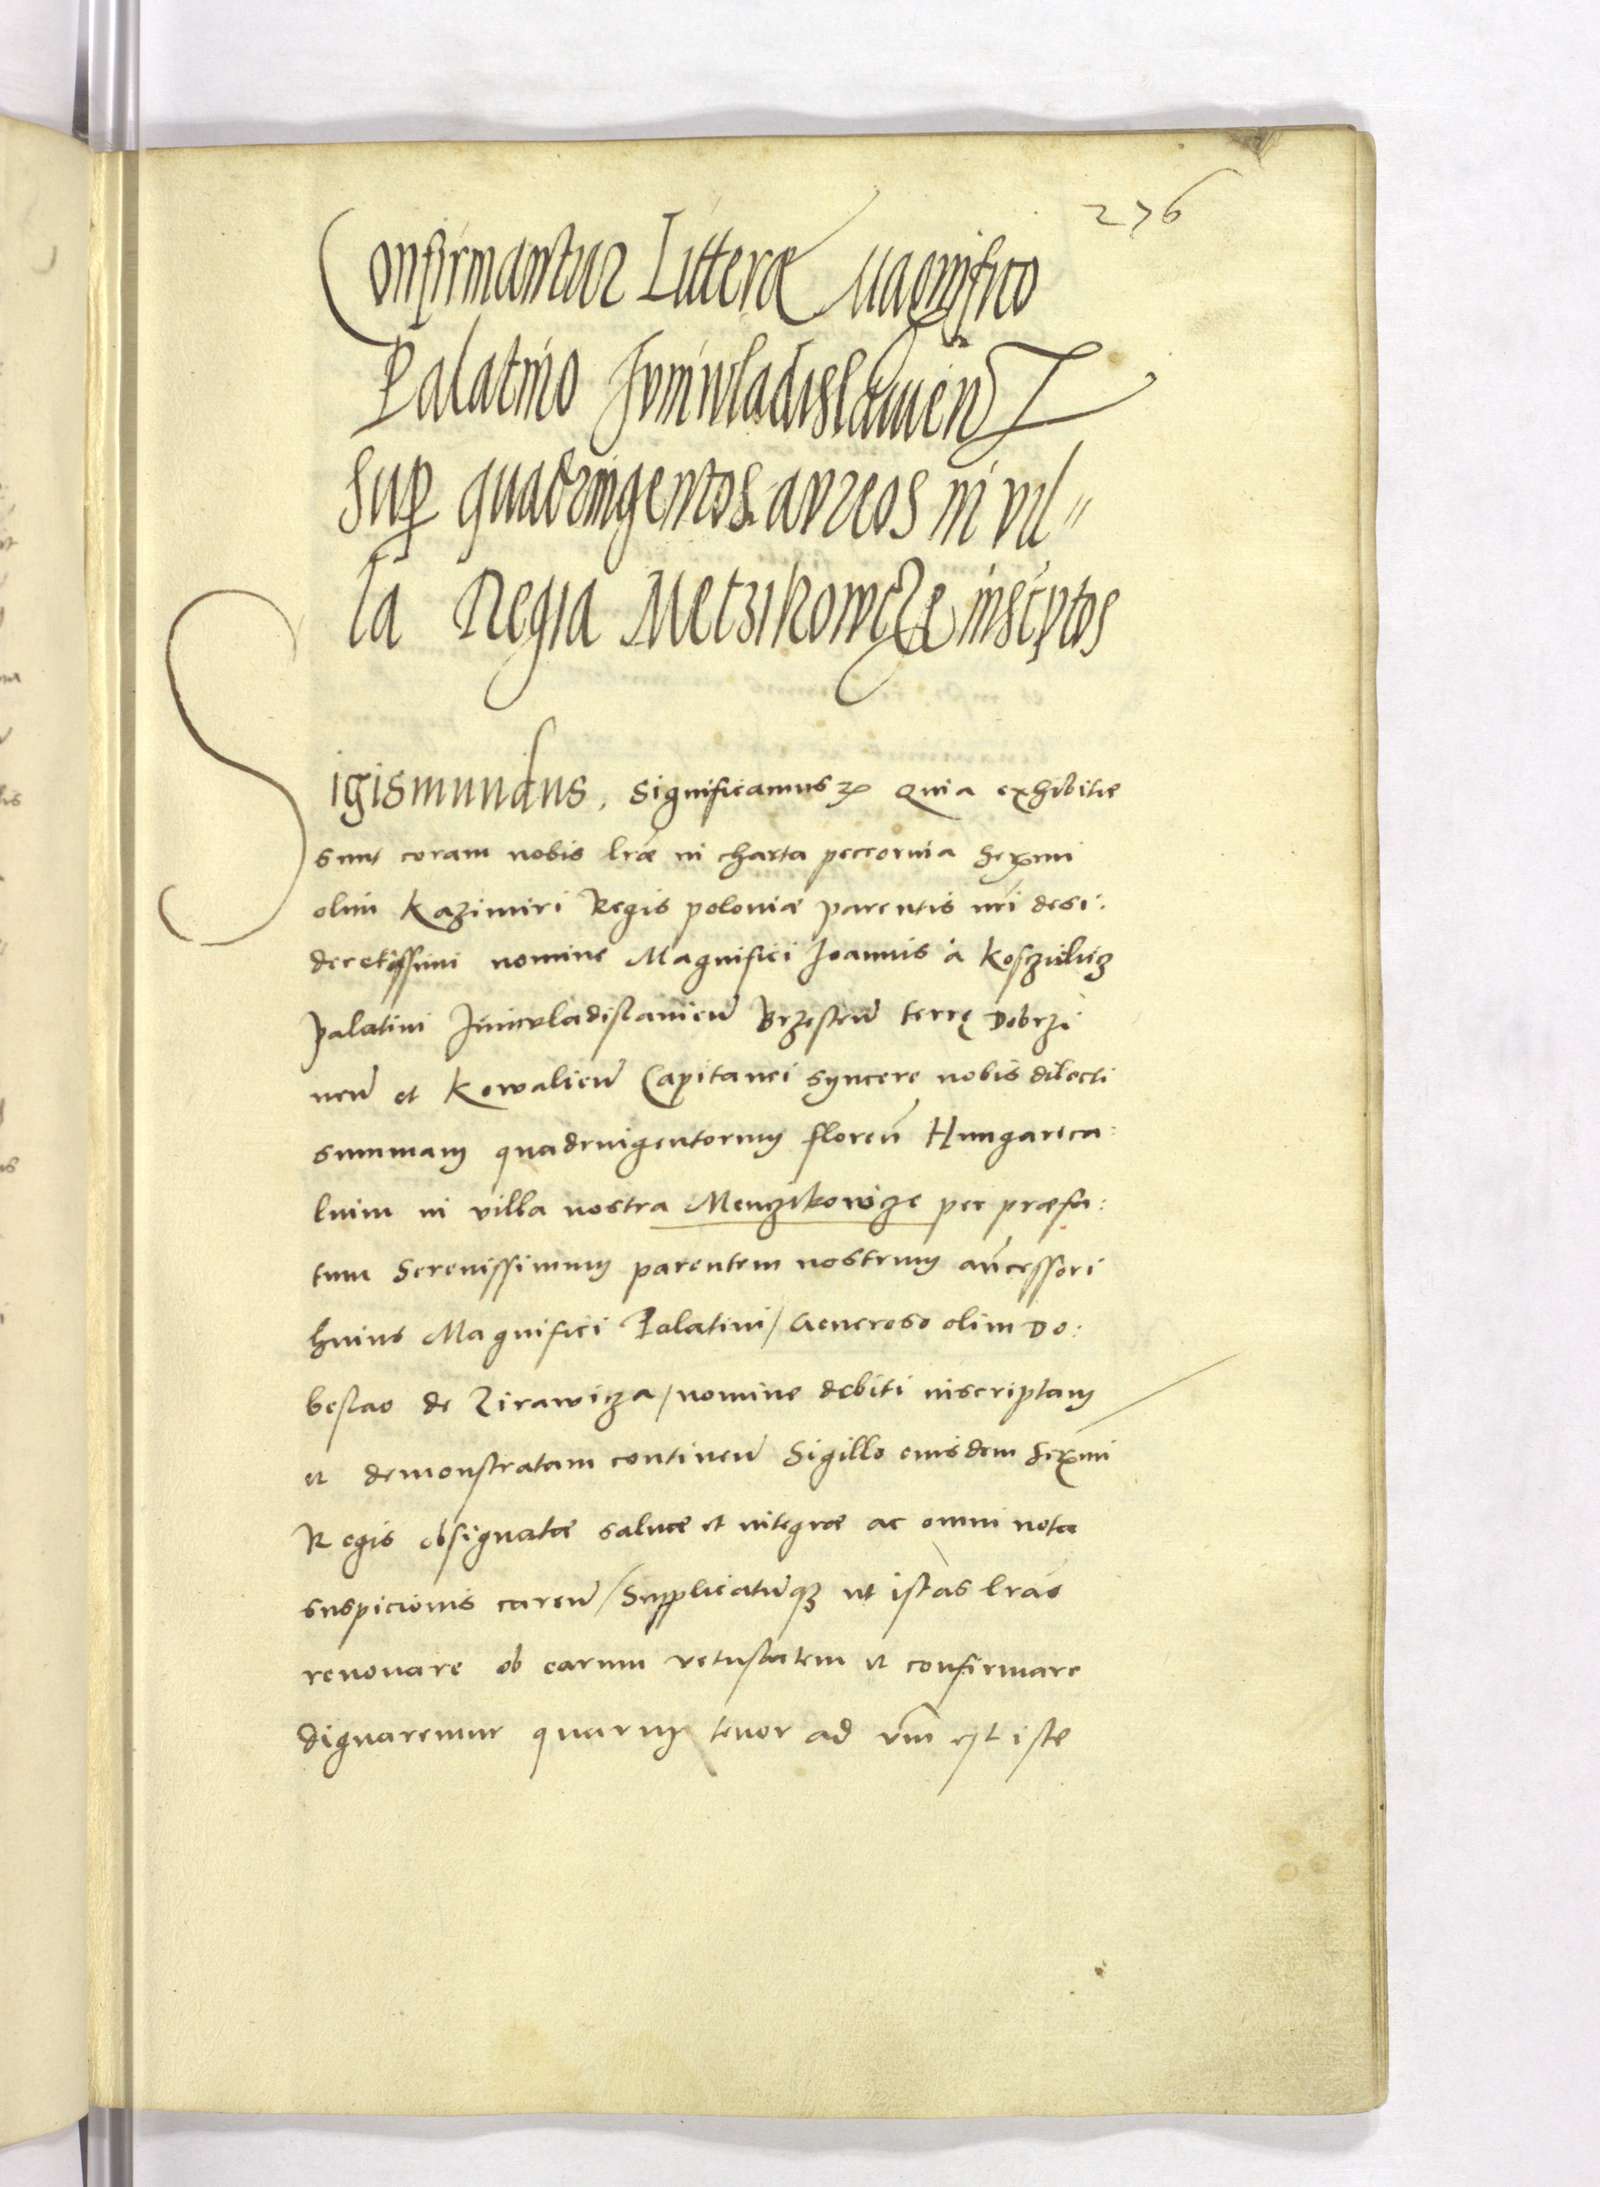 276
Confirmantur Litterae Magnifico
Palatino Juniwladislauień
Sup quadringentos aureos in vil„
la Regia Metzikowcze inscptos
Sigismundus, Significamus Quia exhibitae
sunt coram nobis lrae in charta pecorina Serxmi
olim Kazimiri Regis poloniae parentis nri desi:
deratissimi nomine Magnifici Joannis à Kosczieliecz
palatini Juniwladislauień Brzesteń terrę Dobrzi
neń et Kowalień Capitanei syncere nobis dilecti
summam quadringentorum floreń Hungarica:
lium in villa nostra Menczikowicze per praefa:
tum Serenissimum parentem nostrum ańcessori
huius Magnifici Palatini / Generoso olim Do:
beslao de Zirawicza / nomine debiti inscriptam
et demonstratam contineń Sigillo eiusdem Serxmi
Regis obsignatae saluae et integrae ac omni nota
suspicionis careń / Supplicatumqz ut istas lras
renouare ob earum vetustatem et confirmare
dignaremur quarum tenor ad vm est iste